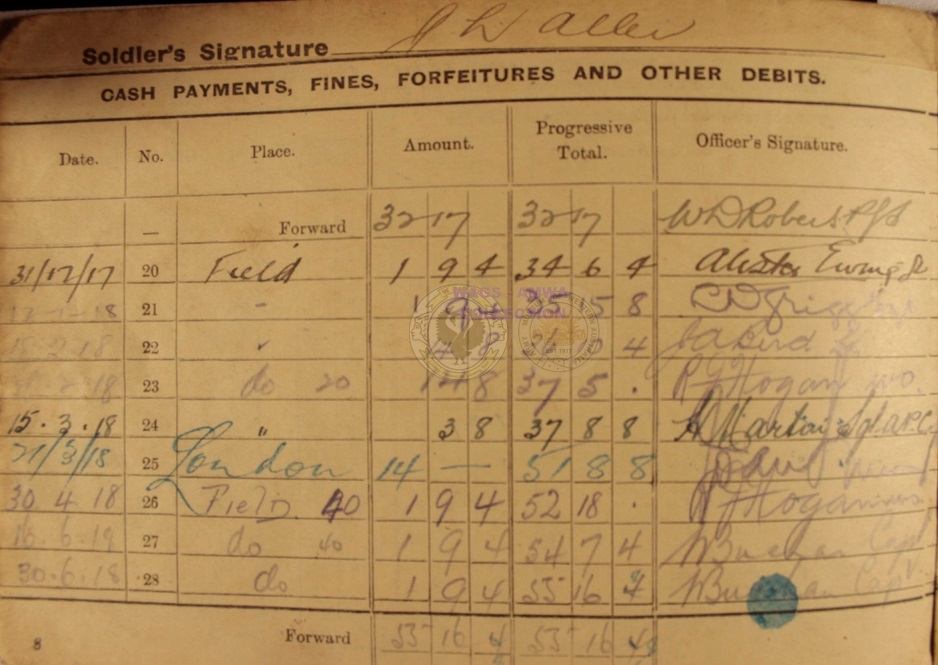 Soldier's Signature J L Allen
CASH PAYMENTS, FINES, FORFEITURES AND OTHER DEBITS.
Date. No. Place. Amount. Progressive Total. Officer's Signature.
— Forward 32 17 32 17 W D Roberts
31/12/17 20 Field 1 9 4 34 6 4 Ewing
18 21 " 1 9 4 35 15 8
15.2.18 22 " 8 4
18 23 do 20 14 8 37 5 . R J Hogan
15.3.18 24 " 3 8 37 8 8 Martin Sgt
21/3/18 25 London 14 — 51 8 8
30 4 18 26 Field 40 1 9 4 52 18 . R J Hogan
16.6.18 27 do 40 1 9 4 54 7 4 Buchan Capt
30.6.18 28 do 1 9 4 55 16 4 Buchan Capt
8 Forward 55 16 4 55 16 4